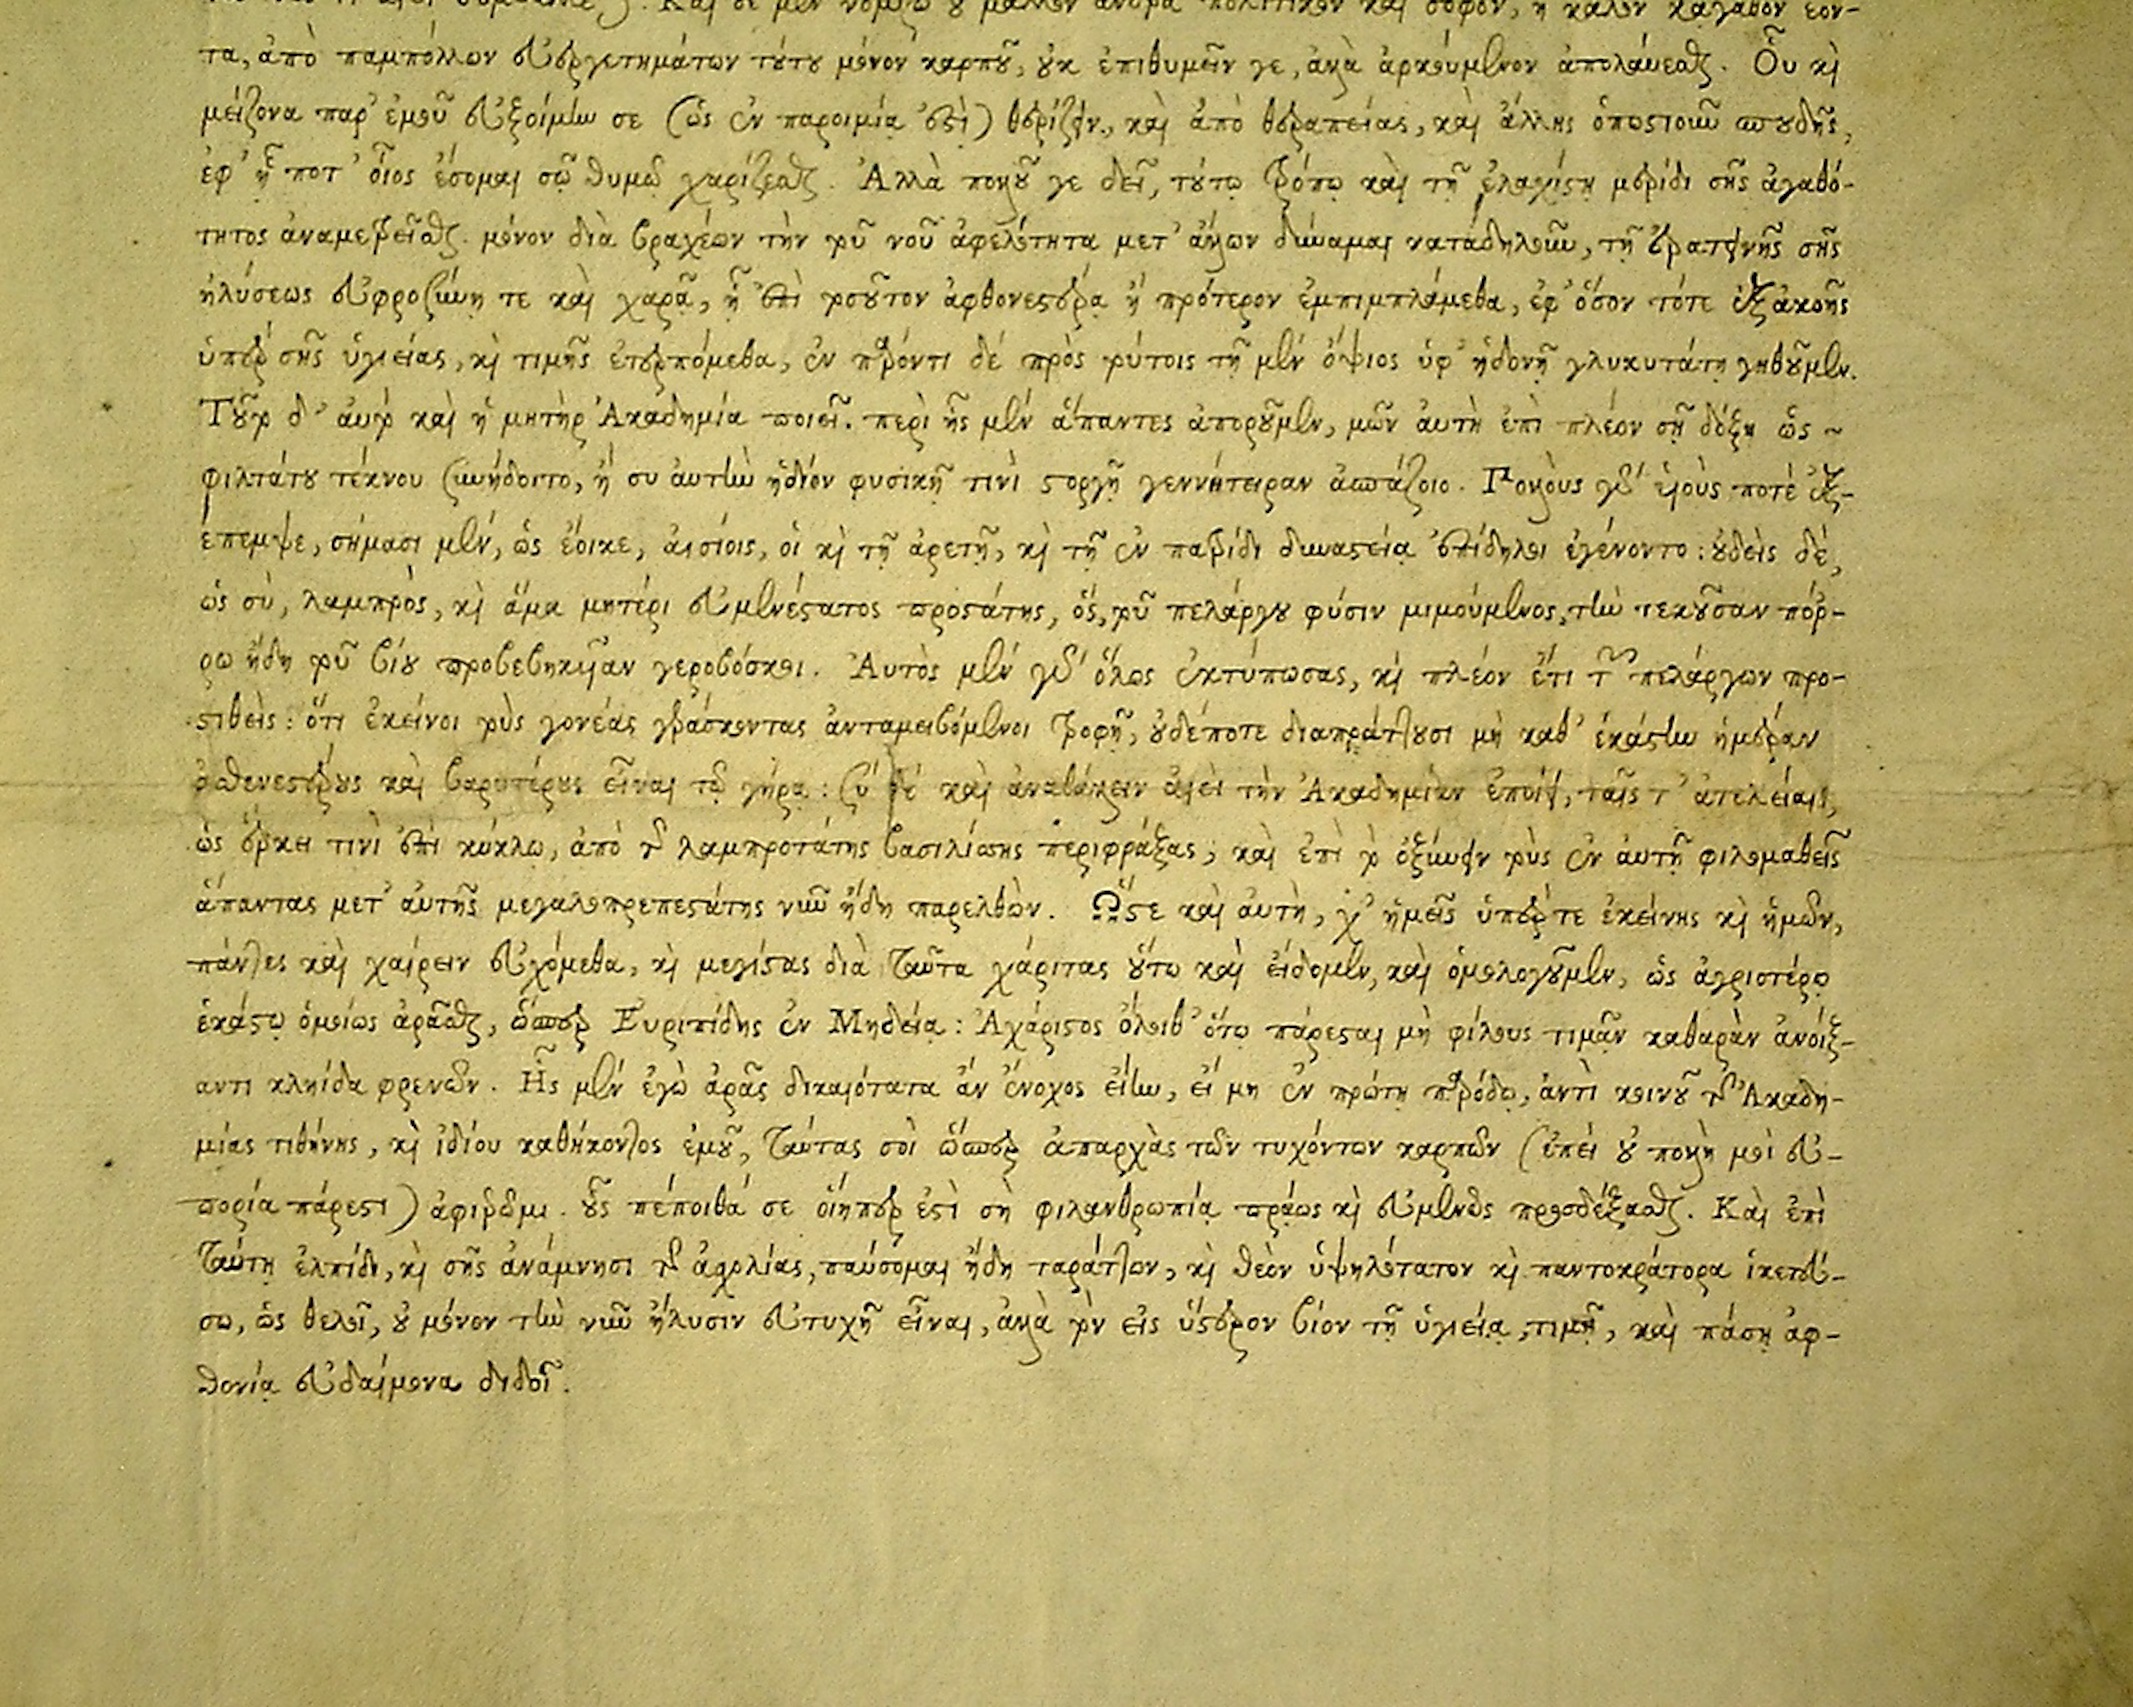 Καί σε μὲν νομίζω οὐ μᾶλλον ἄνδρα πολιτικὸν καὶ σοφὸν, ἢ καλὸν κἀγαθὸν ἐόν-
τα, ἀπὸ παμπόλλων εὐεργετημάτων τούτου μόνον καρποῦ, οὐκ ἐπιθυμεῖν γε, ἀλλὰ ἀρκούμενον ἀπολαύεσθαι. Οὗ καὶ
μείζονα παρ' ἐμοῦ εὐξοίμην σε (ὡς ἐν παροιμίᾳ ἐστὶ) θερίζειν, καὶ ἀπὸ θεραπείας, καὶ ἄλλης ὁπωστιοῦν σπουδῆς,
ἐφ' ᾗ ποτ' οἷος ἔσομαι σῷ θυμῷ χαρίζεσθαι. Ἀλλὰ πολλοῦ γε δεῖ, τούτῳ τρόπῳ καὶ τῇ ἐλαχίστῃ μερίδι σῆς ἀγαθό-
τητος ἀναμετρεῖσθαι. μόνον διὰ βραχέων τὴν τοῦ νοῦ ἀφελότητα μετ' ἄλλων δύναμαι καταδηλοῦν, τῇ ἐρατεινῆς σῆς
ἠλύσεως εὐφροσύνῃ τε καὶ χαρᾷ, ᾗ ἐπὶ τοσοῦτον ἀφθονεστέρᾳ ἢ πρότερον ἐμπιμπλάμεθα, ἐφ' ὅσον τότε ἐξ ἀκοῆς
ὑπὲρ σῆς ὑγιείας, καὶ τιμῆς ἐτερπόμεθα, ἐν παρόντι δὲ πρὸς τούτοις τῇ μὲν ὄψιος ὑφ' ἡδονῇ γλυκυτάτῃ γηθοῦμεν.
Τοῦτο δ' αὐτὸ καὶ ἡ μητὴρ Ἀκαδημία ποιεῖ. περὶ ἧς μὲν ἅπαντες ἀποροῦμεν, μῶν αὐτὴ ἐπὶ πλέον σῇ δόξῃ ὡς ~
φιλτάτου τέκνου συνήδοιτο, ἢ συ αὐτὴν ἥδιον φυσικῇ τινὶ στοργῇ γεννήτειραν ἀσπάζοιο. Πολλοὺς γὰρ υἱοὺς ποτὲ ἐξ-
έπεμψε, σήμασι μὲν, ὡς ἔοικε, αἰσίοις, οἱ καὶ τῇ ἀρετῇ, καὶ τῇ ἐν πατρίδι δυναστείᾳ ἐπίδηλοι ἐγένοντο: οὐδεὶς δὲ,
ὡς σὺ, λαμπρὸς, καὶ ἅμα μητέρι εὐμενέστατος προστάτης, ὅς, τοῦ πελάργου φύσιν μιμούμενος, τὴν τεκοῦσαν πόρ-
ρω ἤδη τοῦ βίου προβεβηκυῖαν γεροβόσκοι. Αὐτὸς μὲν γὰρ ὅλως ἐκτύπωσας, καὶ πλέον ἔτι τῶν πελάργων προ-
στιθεὶς: ὅτι ἐκείνοι τοὺς γονέας γηράσκοντας ἀνταμειβόμενοι τροφῇ, οὐδέποτε διαπράττουσι μὴ καθ' ἑκάστην ἡμέραν
ἀσθενεστέρους καὶ βαρυτέρους εἶναι τῷ γήρᾳ: σὺ δὲ καὶ ἀναθάλλειν αἰεὶ τὴν Ἀκαδημίαν ἐποίει, ταῖς τ' ἀτελείαις,
ὡς ἕρκει τινὶ ἐπὶ κύκλῳ, ἀπὸ τῆς λαμπροτάτης βασιλίσσης περιφράξας, καὶ ἐπὶ τὸ ὀξύνειν τοὺς ἐν αὐτῇ φιλομαθεῖς
ἅπαντας μετ' αὐτῆς μεγαλοπρεπεστάτης νῦν ἤδη παρελθὼν. Ὥστε καὶ αὐτὴ, χ' ἡμεῖς ὑπέρ τε ἐκείνης καὶ ἡμῶν,
πάντες καὶ χαίρειν εὐχόμεθα, καὶ μεγίστας διὰ ταῦτα χάριτας οὕτω καὶ εἴδομεν, καὶ ὁμολογοῦμεν, ὡς ἀχριστέρῳ
ἑκάστῳ ὁμοίως ἀρᾶσθαι, ὥσπερ Ευριπίδης ἐν Μηδείᾳ: Ἀχάριστος ὄλοιθ' ὅτῳ πάρεσται μὴ φίλους τιμᾷν καθαρὰν ἀνοίξ-
αντι κληίδα φρενῶν. Ἧς μὲν ἐγὼ ἀρᾶς δικαιότατα ἂν ἔνοχος εἴην, εἰ μη ἐν πρώτῃ παρόδῳ, ἀντὶ κοινοῦ τῆς Ἀκαδη-
μίας τιθήνης, καὶ ἰδίου καθήκοντος ἐμοῦ, ταύτας σοὶ ὥσπερ ἀπαρχὰς τῶν τυχόντων καρπῶν (ἐπεὶ οὐ πολλὴ μοὶ εὐ-
πορία πάρεστι) ἀφιερῶμι. οὓς πέποιθά σε οἵηπερ ἐστὶ σὴ φιλανθρωπίᾳ πράως καὶ εὐμενῶς προσδέξασθαι. Καὶ ἐπὶ
ταύτῃ ἐλπίδι, καὶ σῆς ἀνάμνησι τῆς ἀσχολίας, παύσομαι ἤδη ταράττων, καὶ θεὸν ὑψηλότατον καὶ παντοκράτορα ἱκετεύ-
σω, ὡς θελοῖ, οὐ μόνον τὴν νῦν ἤλυσιν εὐτυχῆ εἶναι, ἀλλὰ τὸν εἰς ὕστερον βίον τῇ ὑγιείᾳ, τιμῇ, καὶ πάσῃ ἀφ-
θονίᾳ εὐδαίμονα διδοῖ.